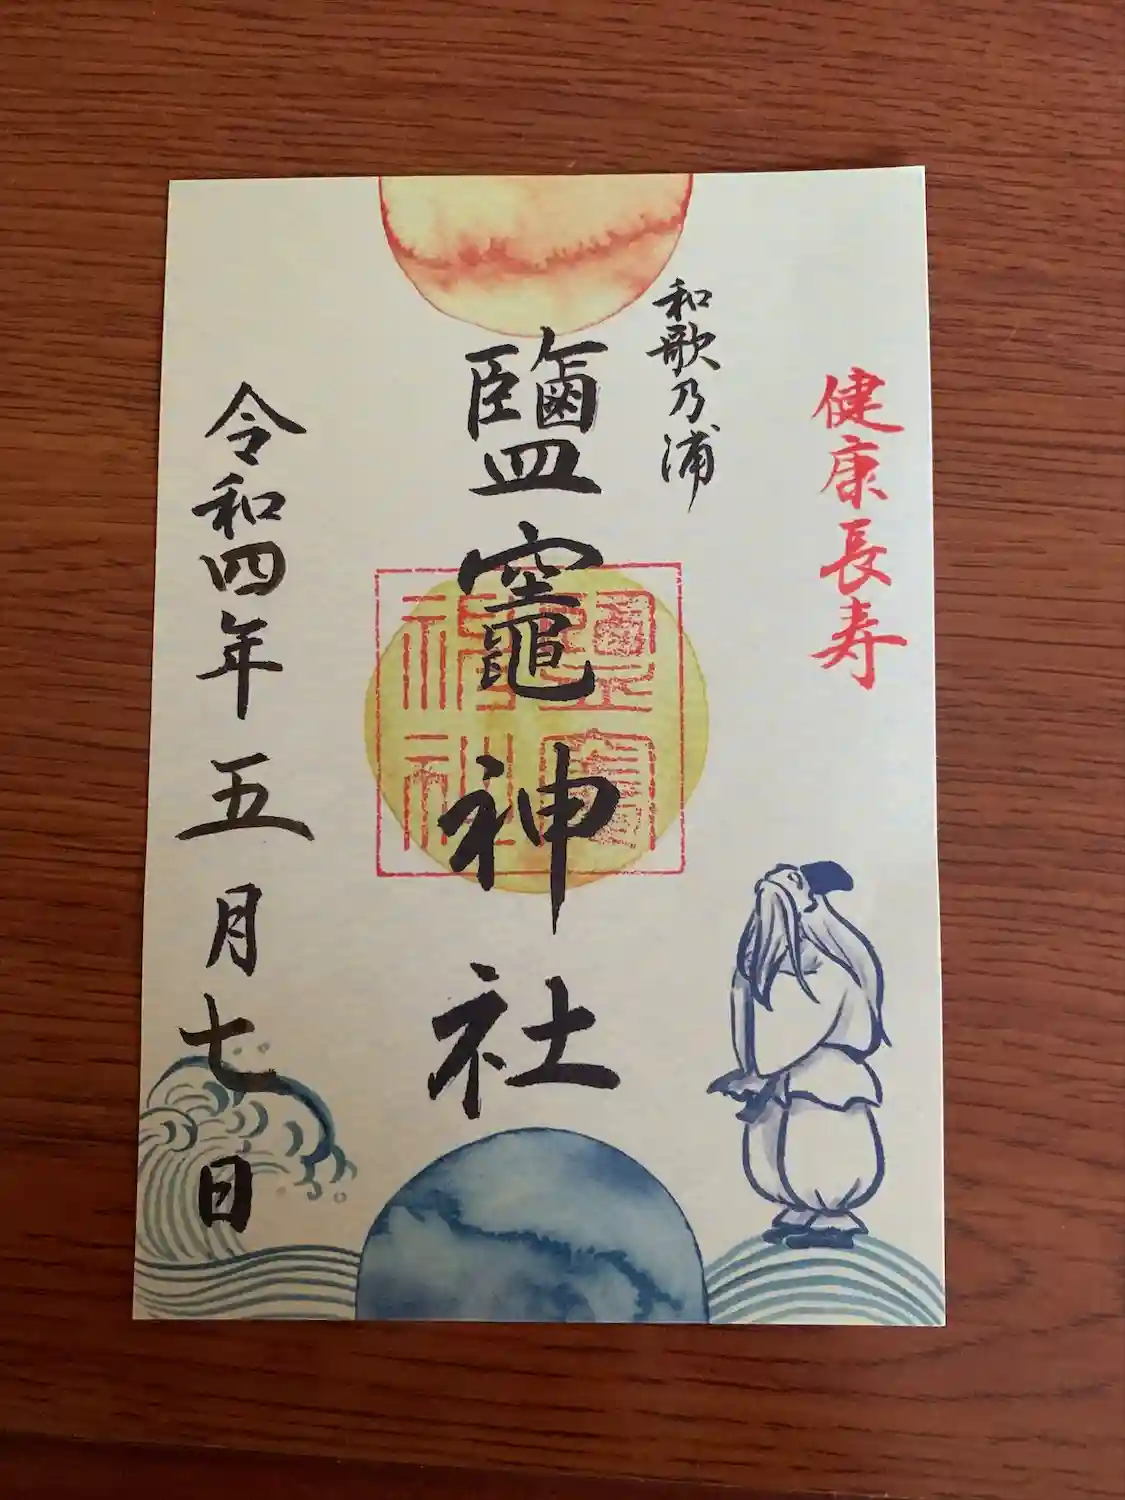 健康長寿
和歌乃浦
鹽竈神社
令和四年五月七日
鹽竈神社